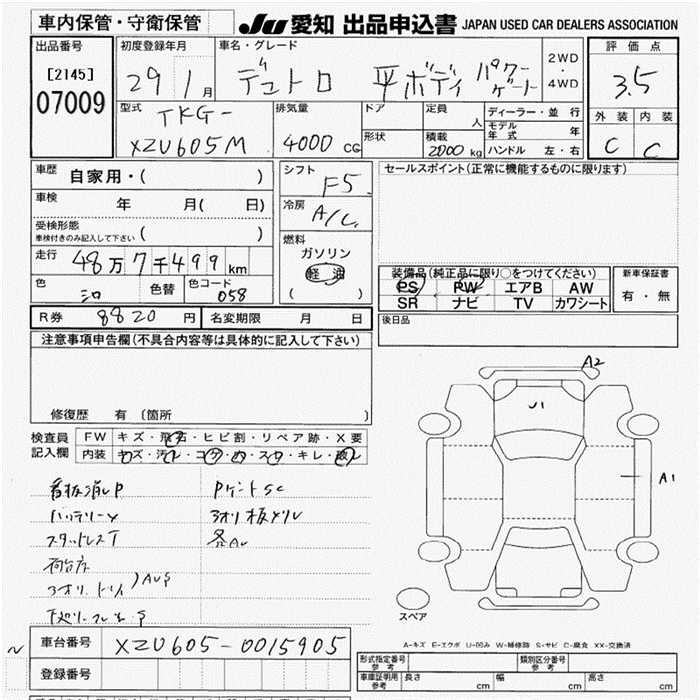 車内保管・守衛保管
JU 愛知 出品申込書 JAPAN USED CAR DEALERS ASSOCIATION
出品番号
[2145]
07009
初度登録年月
29 1月
車名・グレード
デュトロ 平ボディ パワーゲート
2WD
・
4WD
評価点
3.5
外装 内装
C C
型式
TKG-
XZU605M
排気量
4000 CC
ドア
形状
定員
人
積載
2000 kg
ディーラー・並行
モデル年式 年
ハンドル 左・右
車歴
自家用・( )
車検
年 月( 日)
受検形態
車検付きのみ記入して下さい ( )
走行 48万7千499 km
色 シロ 色替 色コード 058
シフト
F5
冷房
A/C
燃料
ガソリン
軽油
( )
セールスポイント(正常に機能するものに限ります)
装備品(純正品に限り○をつけてください)
PS PW エアB AW
SR ナビ TV カワシート
新車保証書
有・無
R券 8820 円 名変期限 月 日
後日品
注意事項申告欄(不具合内容等は具体的に記入して下さい)
修復歴 有 〔箇所 〕
検査員
記入欄
FW キズ・飛石・ヒビ割・リペア跡・X要
内装 キズ・汚レ・コゲ・穴・スレ・キレ・破レ
看板消しP
PゲートSC
バッテリーX
3オリ板メリレ
スタッドレスT
各AU
荷台床
A2
J1
A1
スペア
車台番号 XZU605-0015905
登録番号
A-キズ E-エクボ U-凹み W-補修跡 S-サビ C-腐食 XX-交換済
形式指定番号
参考
類別区分番号
参考
車庫証明用
参考
長さ cm 幅 cm 高さ cm